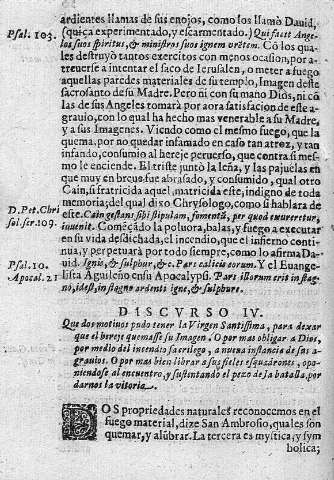 ardientes llamas de sus enojos, como los llamò Dauid,
Psal. 103.
(quiça experimentado, y escarmentado.) Qui facit Ange-
los suos spiritus, & ministros suos ignem vrẽtem. Cõ los qua-
les destruyò tantos exercitos con menos ocasion, por a-
treuerse a intentar el saco de Ierusalen, o meter a fuego
aquellas paredes materiales de su templo, Imagen deste
sacrosanto de su Madre. Pero ni con su mano Dios, ni cõ
las de sus Angeles tomarà por aora satisfacion de este a-
grauio, con lo qual ha hecho mas venerable a su Madre,
y a sus Imagenes. Viendo como el mesmo fuego, que la
quema, por no quedar infamado en caso tan atroz, y tan
infando, consumio al hereje peruerso, que contra si mes-
mo le enciende. El triste juntò la leña, y las pajuelas en
que muy en breue fue abrasado, y consumido, qual otro
Cain, si fratricida aquel, matricida este, indigno de toda
memoria; del qual dixo Chrysologo, como si hablara de
D. Pet. Chri
este. Cain gestans sibi stipulam, fomentũ, per quod exureretur,
sol. ser. 109.
inuenit. Começãdo la poluora, balas, y fuego a executar
en su vida desdichada, el incendio, que el infierno conti-
nua, y perpetuarà por todo siempre, como lo afirma Da-
Psal. 10.
uid. Ignis, & sulphur, &c. Pars calicis eorum. Y el Euange-
Apocal. 21
lista Aguileño en su Apocalypsi. Pars illorum erit in stag-
nó, idest, in stagno ardenti igne, & sulphure.
DISCVRSO IV.
Que dos motiuos pudo tener la Virgen Santissima, para dexar
que el hereje quemasse su Imagen. O por mas obligar a Dios,
por medio del incendio sacrilego, a nueua instancia de sus a-
grauios. O por mas bien librar a sus fieles esquadrones, opo-
niendose al encuentro, y sustentando el pezo de la batalla, por
darnos la vitoria.
DOS propriedades naturales reconocemos en el
fuego material, dize San Ambrosio, quales son
quemar, y alũbrar. La tercera es mystica, y sym
bolica;